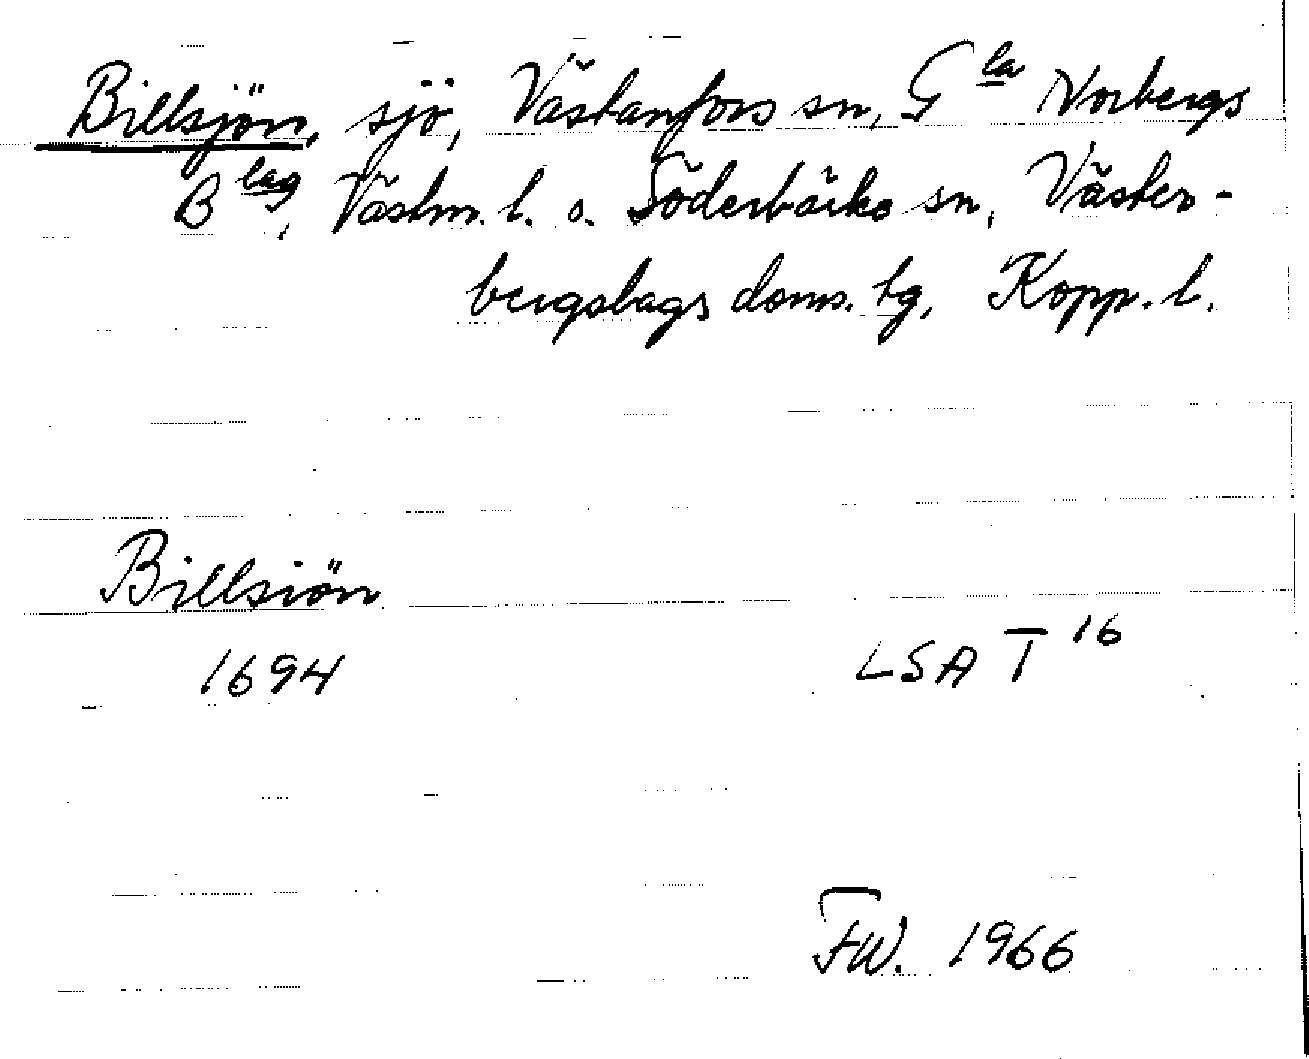 Billsjön, sjö, Västanfors sn, G la Norbergs
B lag, Västm. l. o. Söderbärke sn, Väster-
bergslags doms. tg, Kopp. l.
Billsiön
1694 LSA T 16
FW. 1966